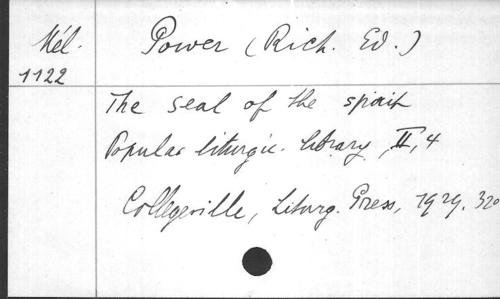 Mél.
1122
Power (Rich. Ed.)
The seal of the spirit
Popular liturgic. library, II, 4
Collegeville, Liturg. Press, 1929. 320